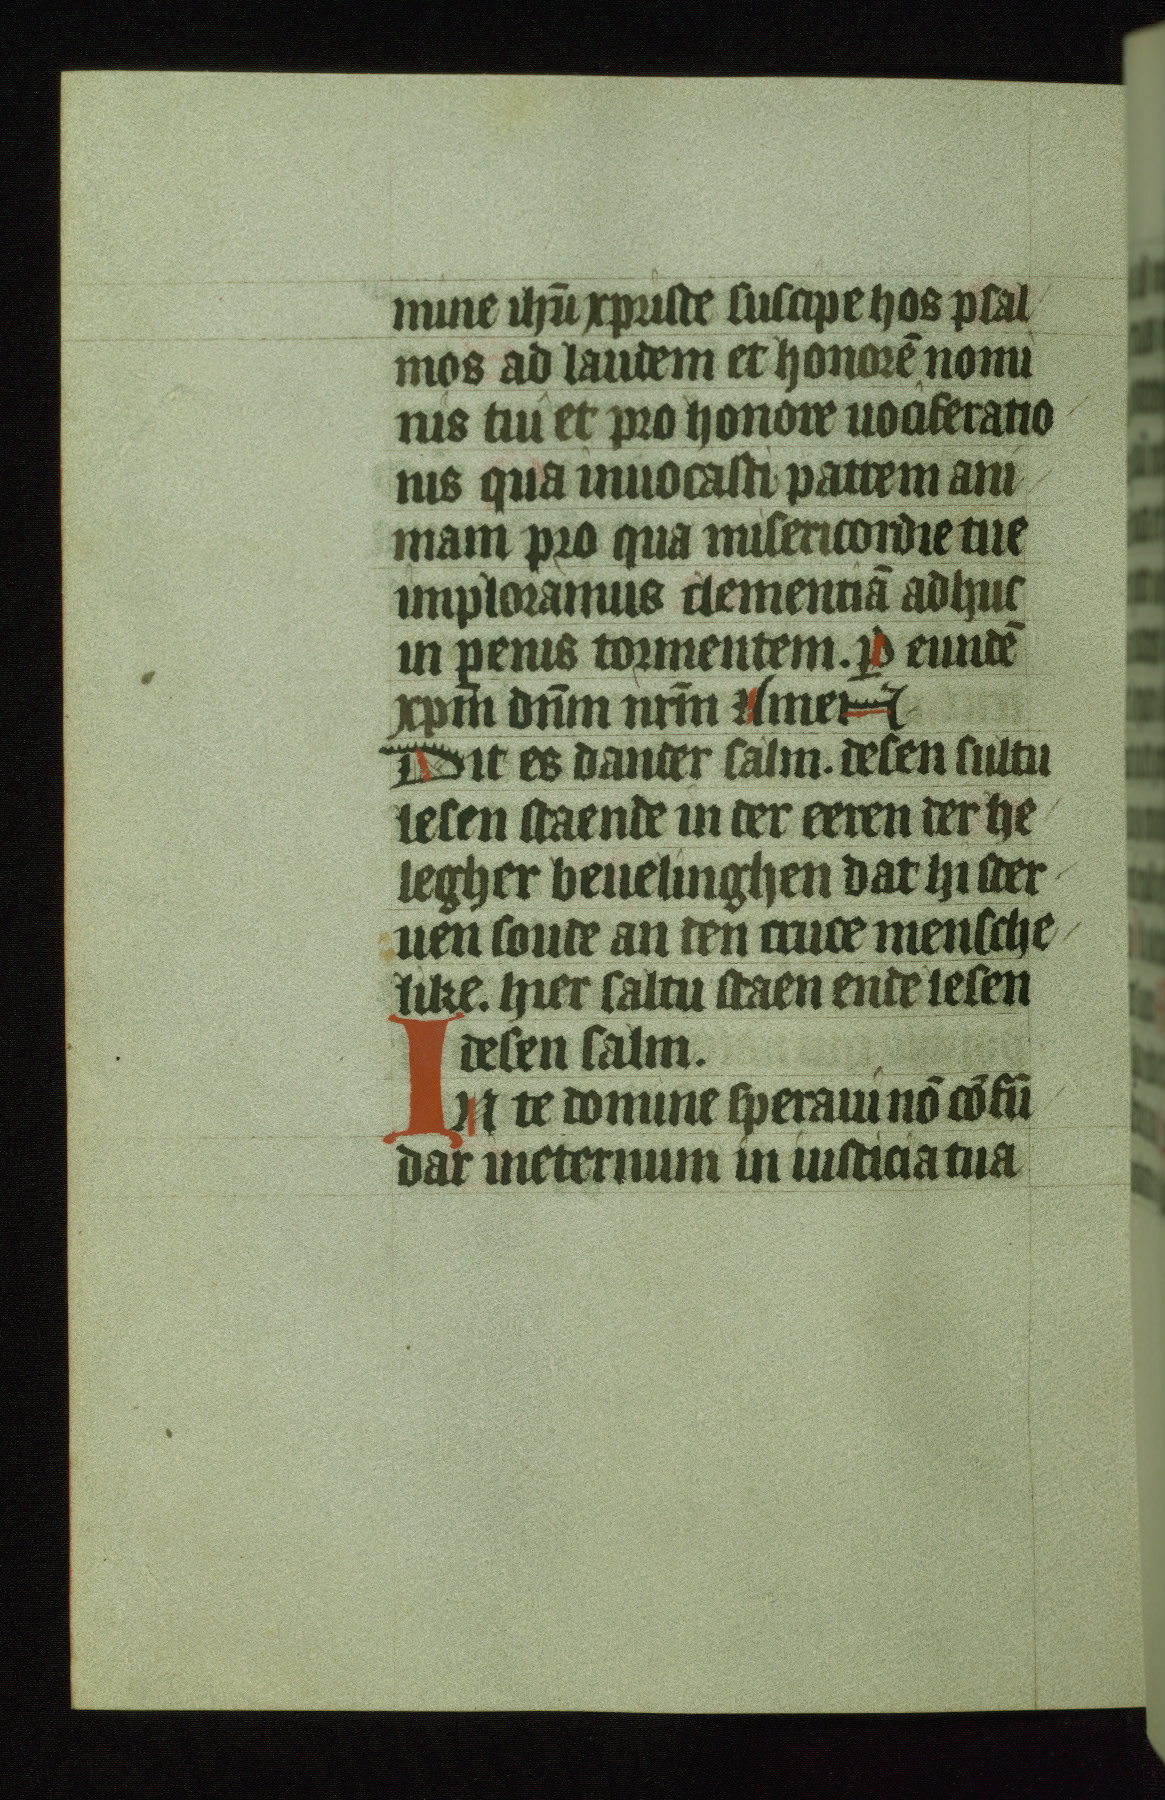 mine ihū xpriste suscipe hos psal
mos ad laudem et honorē nomi
nis tui et pro honore uociferatio
nis qua inuocasti patrem ani
mam pro qua misericordie tue
imploramus clementiā adhuc
in penis tormentem. P eundē
xpm̄ dn̄m nr̄m Amen
Dit es dander salm. desen sultu
lesen staende in der eeren der he
legher beuelinghen dat hi ster
uen soude an den cruce mensche
like. hier saltu staen ende lesen
desen salm.
In te domine speraui nō cōfū
dar ineternum in iusticia tua